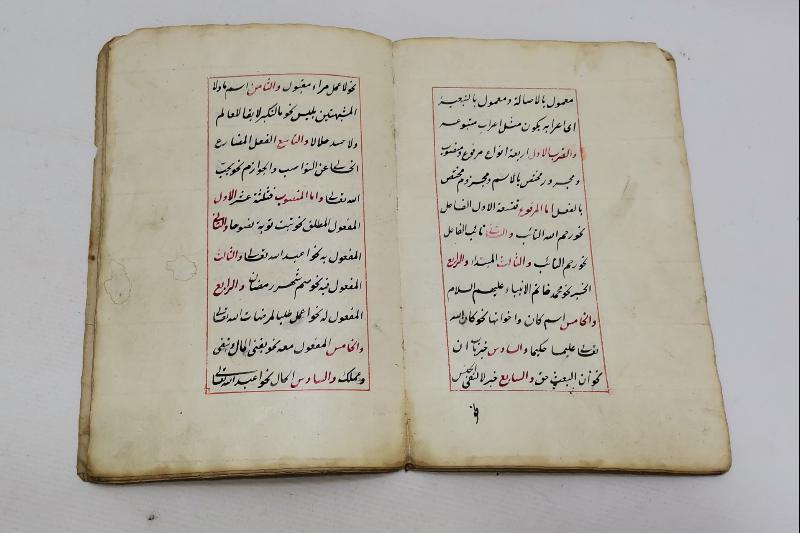 معمول بالاصالة ومعمول بالتبعية
اى اعرابه يكون مثل اعراب متبوعه
والضرب الاول اربعة انواع مرفوع ومنصوب
ومجرور مختص بالاسم ومجزوم مختص
بالفعل اما المرفوع فتسعة الاول الفاعل
نحو رحم الله التائب والثانى نائب الفاعل
نحو رحم التائب والثالث المبتداء والرابع
الخبر نحو محمد خاتم الانبياء عليهم السلام
والخامس اسم كان واخواتها نحو كان الله
تعالى عليما حكيما والسادس خبر باب ان
نحو أن البعث حق والسابع خبر لا لنفى الجنس
نحو لا عمل مراء مقبول والثامن اسم ما ولا
المشبهتين بليس نحو ما التكبر لايقا للعالم
ولا حسد حلالا والتاسع الفعل المضارع
الخالى عن النواصب والجوازم نحو يحب
الله تعالى واما المنصوب فثلثة عشر الاول
المفعول المطلق نحو تبت توبة نصوحا والثانى
المفعول به نحو اعبد الله تعالى والثالث
المفعول فيه نحو صم شهر رمضان والرابع
المفعول له نحو اعمل طلبا لمرضات الله تعالى
والخامس المفعول معه نحو يفنى المال وتبقى
وعملك والسادس الحال نحو اعبد الله تعالى